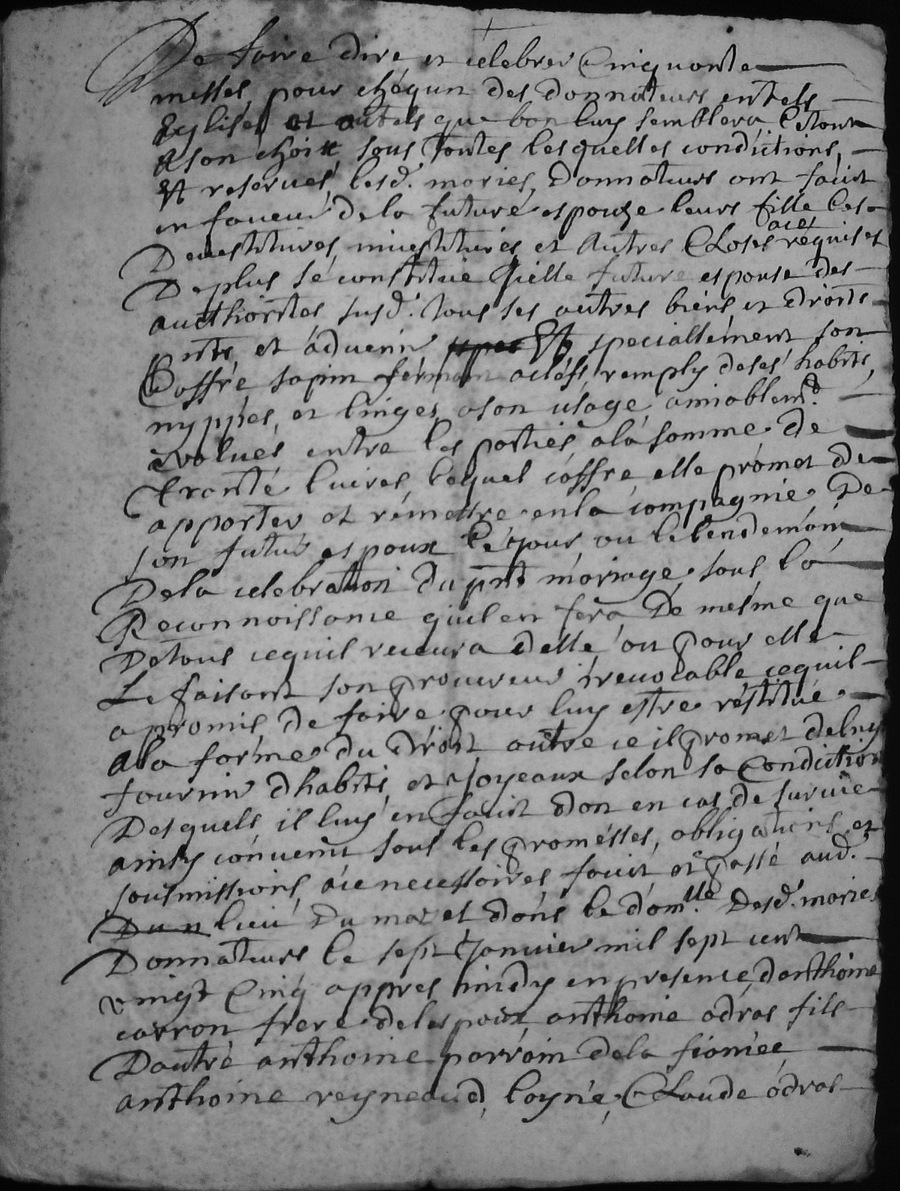 De faire dire et celebrer Cinquante
messes, pour chaqun des donnateurs entels
Eglises et autels que bon luy semblera Letout
A son choix, sous toutes lesquelles condictions,
Et reserves, lesd. maries, Donnateurs ont faict
en faveur de la future espouze leurs fille Les
Devestitures, investitures et Autres Closes ace requises
De plus se constitue Icelle future espouse des
aucthorites susd. tous ses autres biens et droits
pnts, et advenir Et speciallement son
Coffre sapin fermant aclefs, remply deses habits,
nyppes, et linges, ason usage amiablemt
evalues entre les parties ala somme de
Trante livres lequel coffre elle promet de
apporter et remettre enla compagnie De
son futur espoux le jour ou lelendemain
Dela celebration du pnt mariage, sous la
Reconnoissance quilen fera, De mesme que
Detous cequil recevra delle ou pour elle
Le faisant son procureur irrevocable cequil
a promis, de faire pour luy estre restitué
Ala forme du Droit outre ce il promet deluy
fournir dhabits, et Joyeaux selon sa Condiction
Desquels il luy en faict don en cas de survie
ainsy convenu sous les promesses, obligations et
sousmissions, ace necessoires faict et passé aud.
Du n lieu Du mas et dans le domlle Desd. maries
Donnateurs le sept Janvier mil sept cent
vingt Cinq appres midy en presence danthoine
carron frere delespoux anthoine odras fils
Dautre anthoine parrain dela fiancée
anthoine reyneaud, loyné, Claude odras